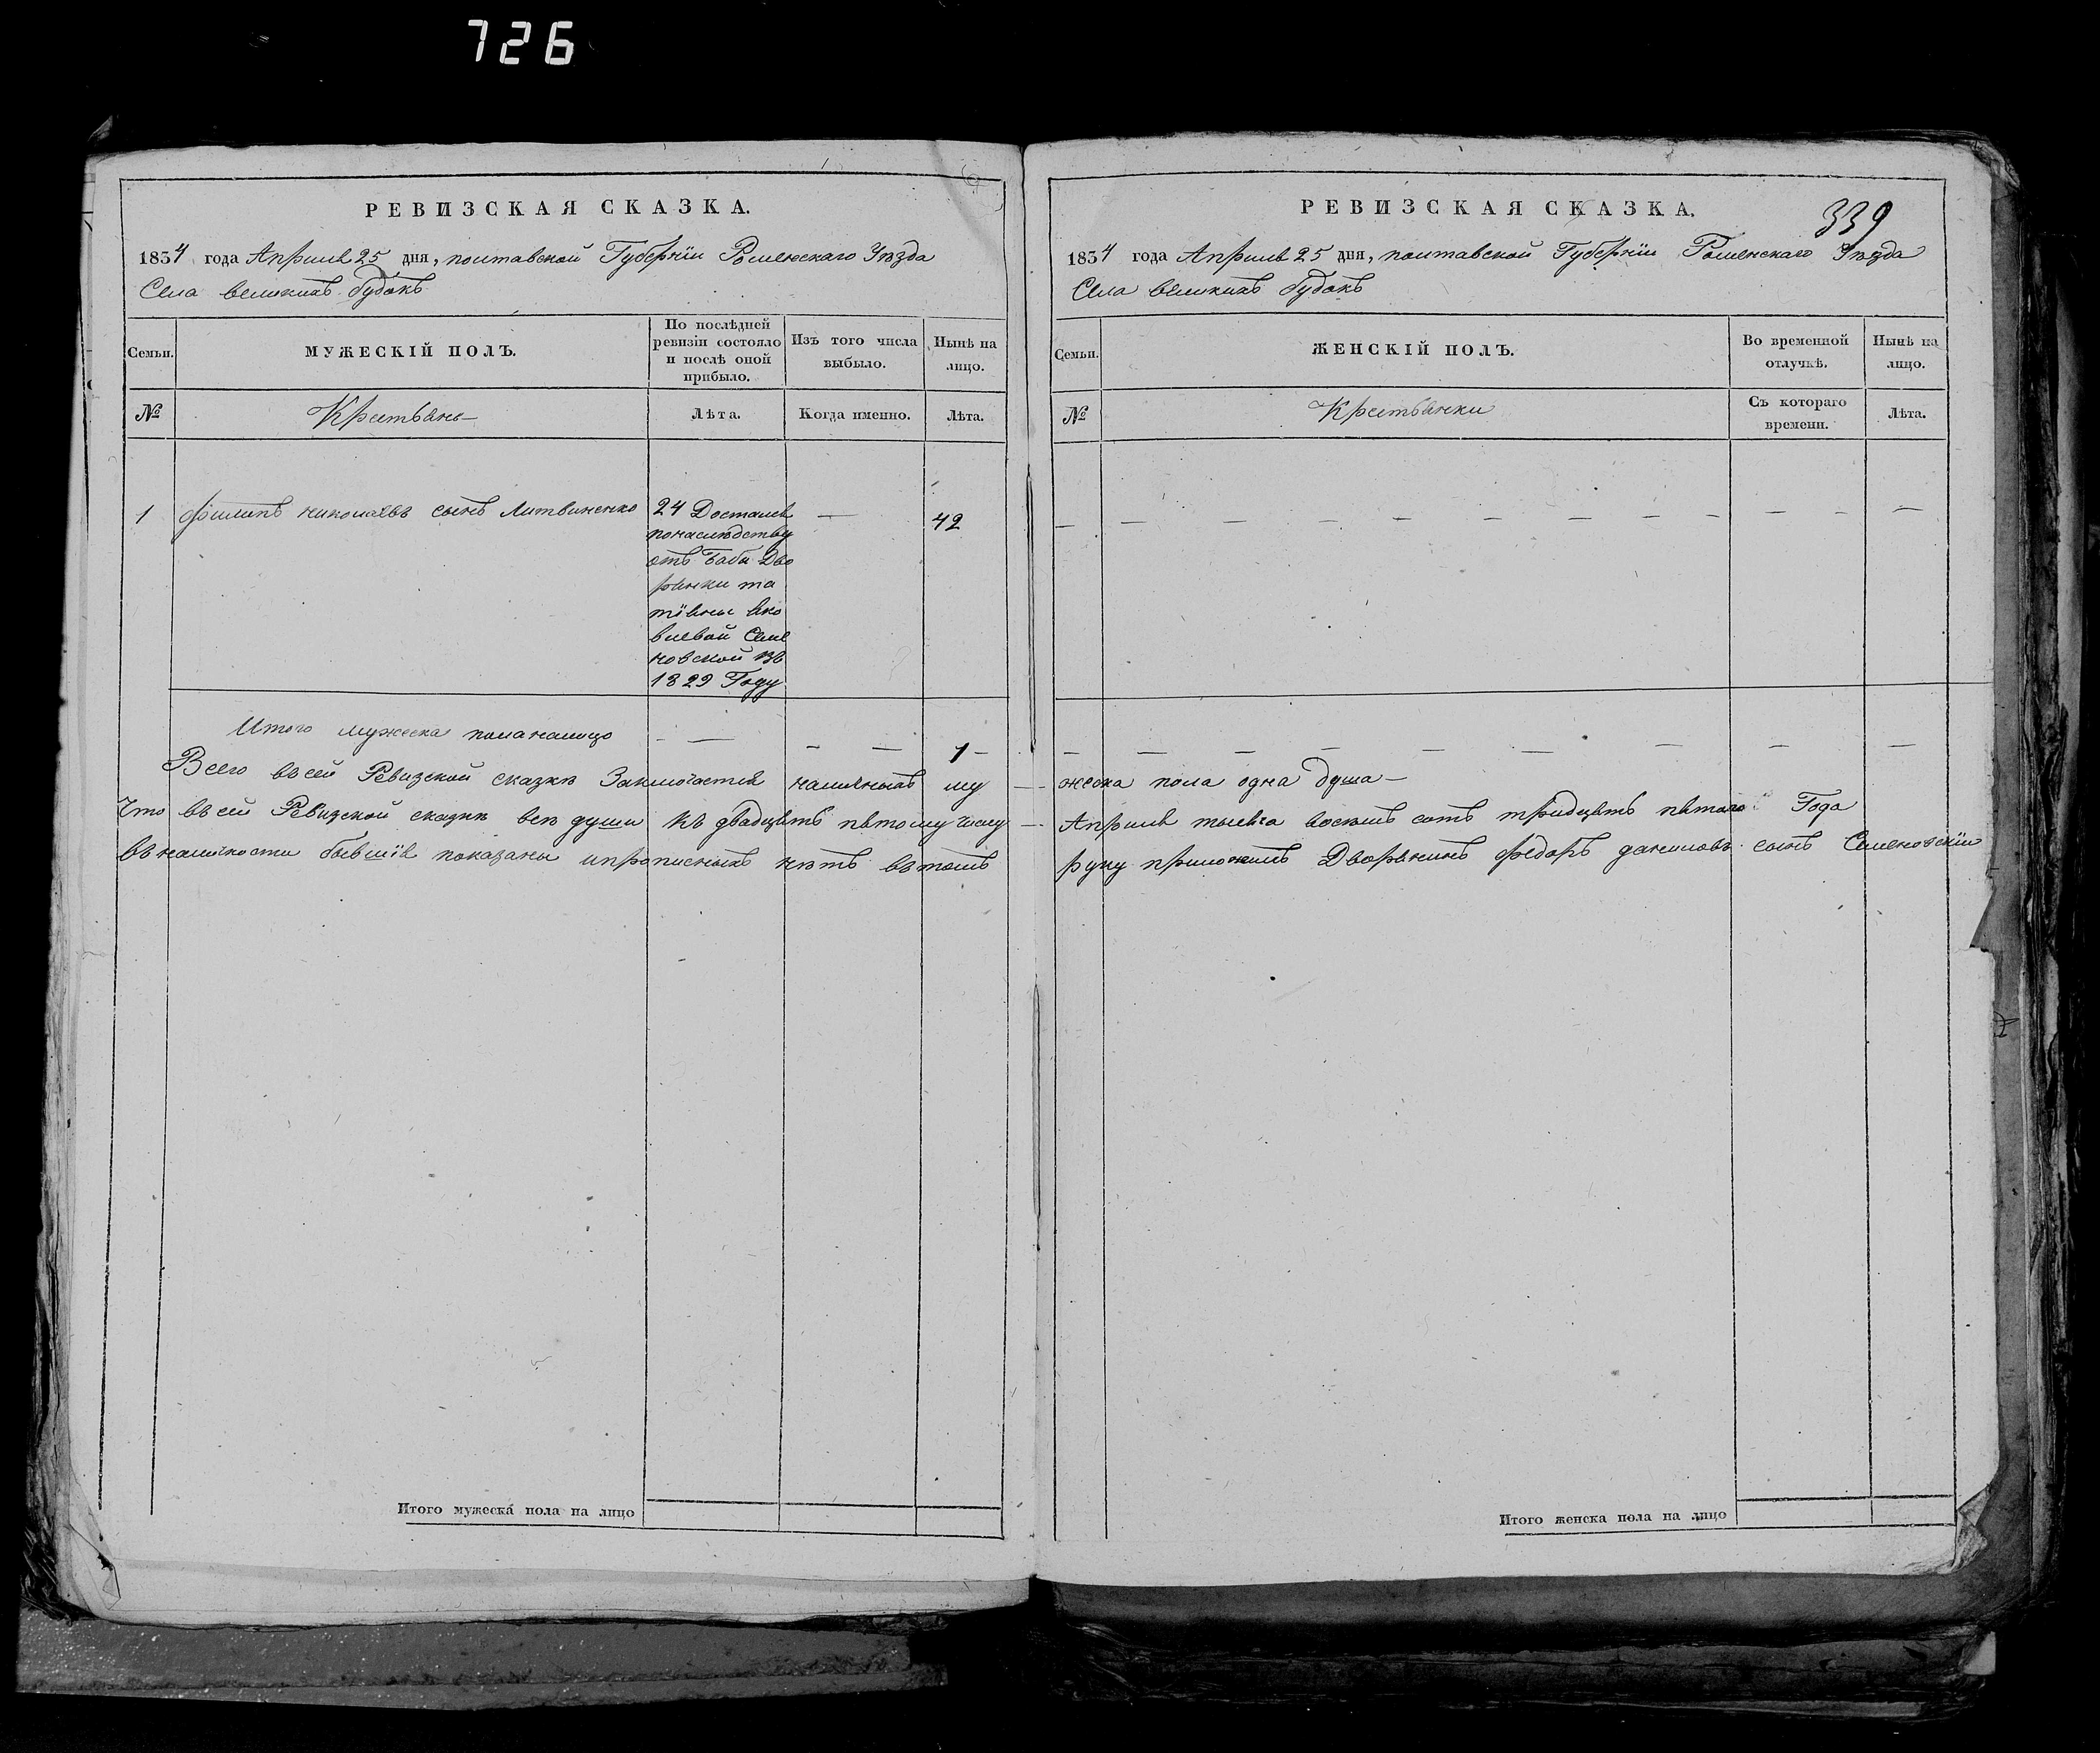 726
РЕВИЗСКАЯ СКАЗКА.
1834 года Апреля 25 дня, полтавской Губернїи Роменскаго Уезда
Села великихъ будокъ
Семьи.
МУЖЕСКІЙ ПОЛЪ.
По послѣдней ревизіи состояло и послѣ оной прибыло.
Изъ того числа выбыло.
Нынѣ на лицо.
№
Крестьяне
Лѣта.
Когда именно.
Лѣта.
1
Филипъ николаевъ сынъ Литвиненко
24 Достался
понаследству
отъ баби Дво
рянки та
тїяны яко
влевой Семе
новской въ
1829 Году
—
42
Итого мужеска пола налицо — — — — 1 —
Всего въ сей Ревизской сказке Заключается наличныхъ му
Что въ сей Ревизской сказке все души къ двадцять пятому числу
въ наличности бывшїе показаны и прописныхъ нетъ въ томъ
Итого мужеска пола на лицо
339
РЕВИЗСКАЯ СКАЗКА.
1834 года Апреля 25 дня, полтавской Губернїи Роменскаго Уезда
Села великихъ будокъ
Семьи.
ЖЕНСКІЙ ПОЛЪ.
Во временной отлучкѣ.
Нынѣ на лицо.
№
Крестьянки
Съ котораго времени.
Лѣта.
— — — — — — — — — — — —
— — — — — — — — —
жеска пола одна душа —
Апреля тысяча восемь сотъ тридцять пятого Года
руку приложилъ Дворянинъ федоръ даниловъ сынъ Семеновскїй
Итого женска пола на лицо